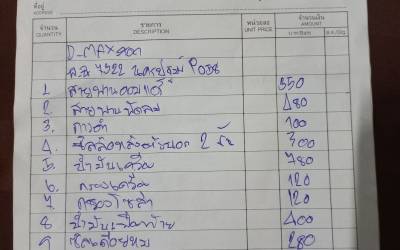 ที่อยู่
ADDRESS
จำนวน รายการ หน่วยละ จำนวนเงิน
QUANTITY DESCRIPTION UNIT PRICE AMOUNT
บาท/Baht ส.ต./Stg.
D-MAX
7322 นครปฐม
1. สายพานคอมแอร์ 350
2. สายพานพัดลม 480
3. กาวดำ 100
4. 2 300
5. น้ำมันเครื่อง 780
6. กรองเครื่อง 120
7. กรองโซล่า 120
8 น้ำมันเฟืองท้าย 400
9 280